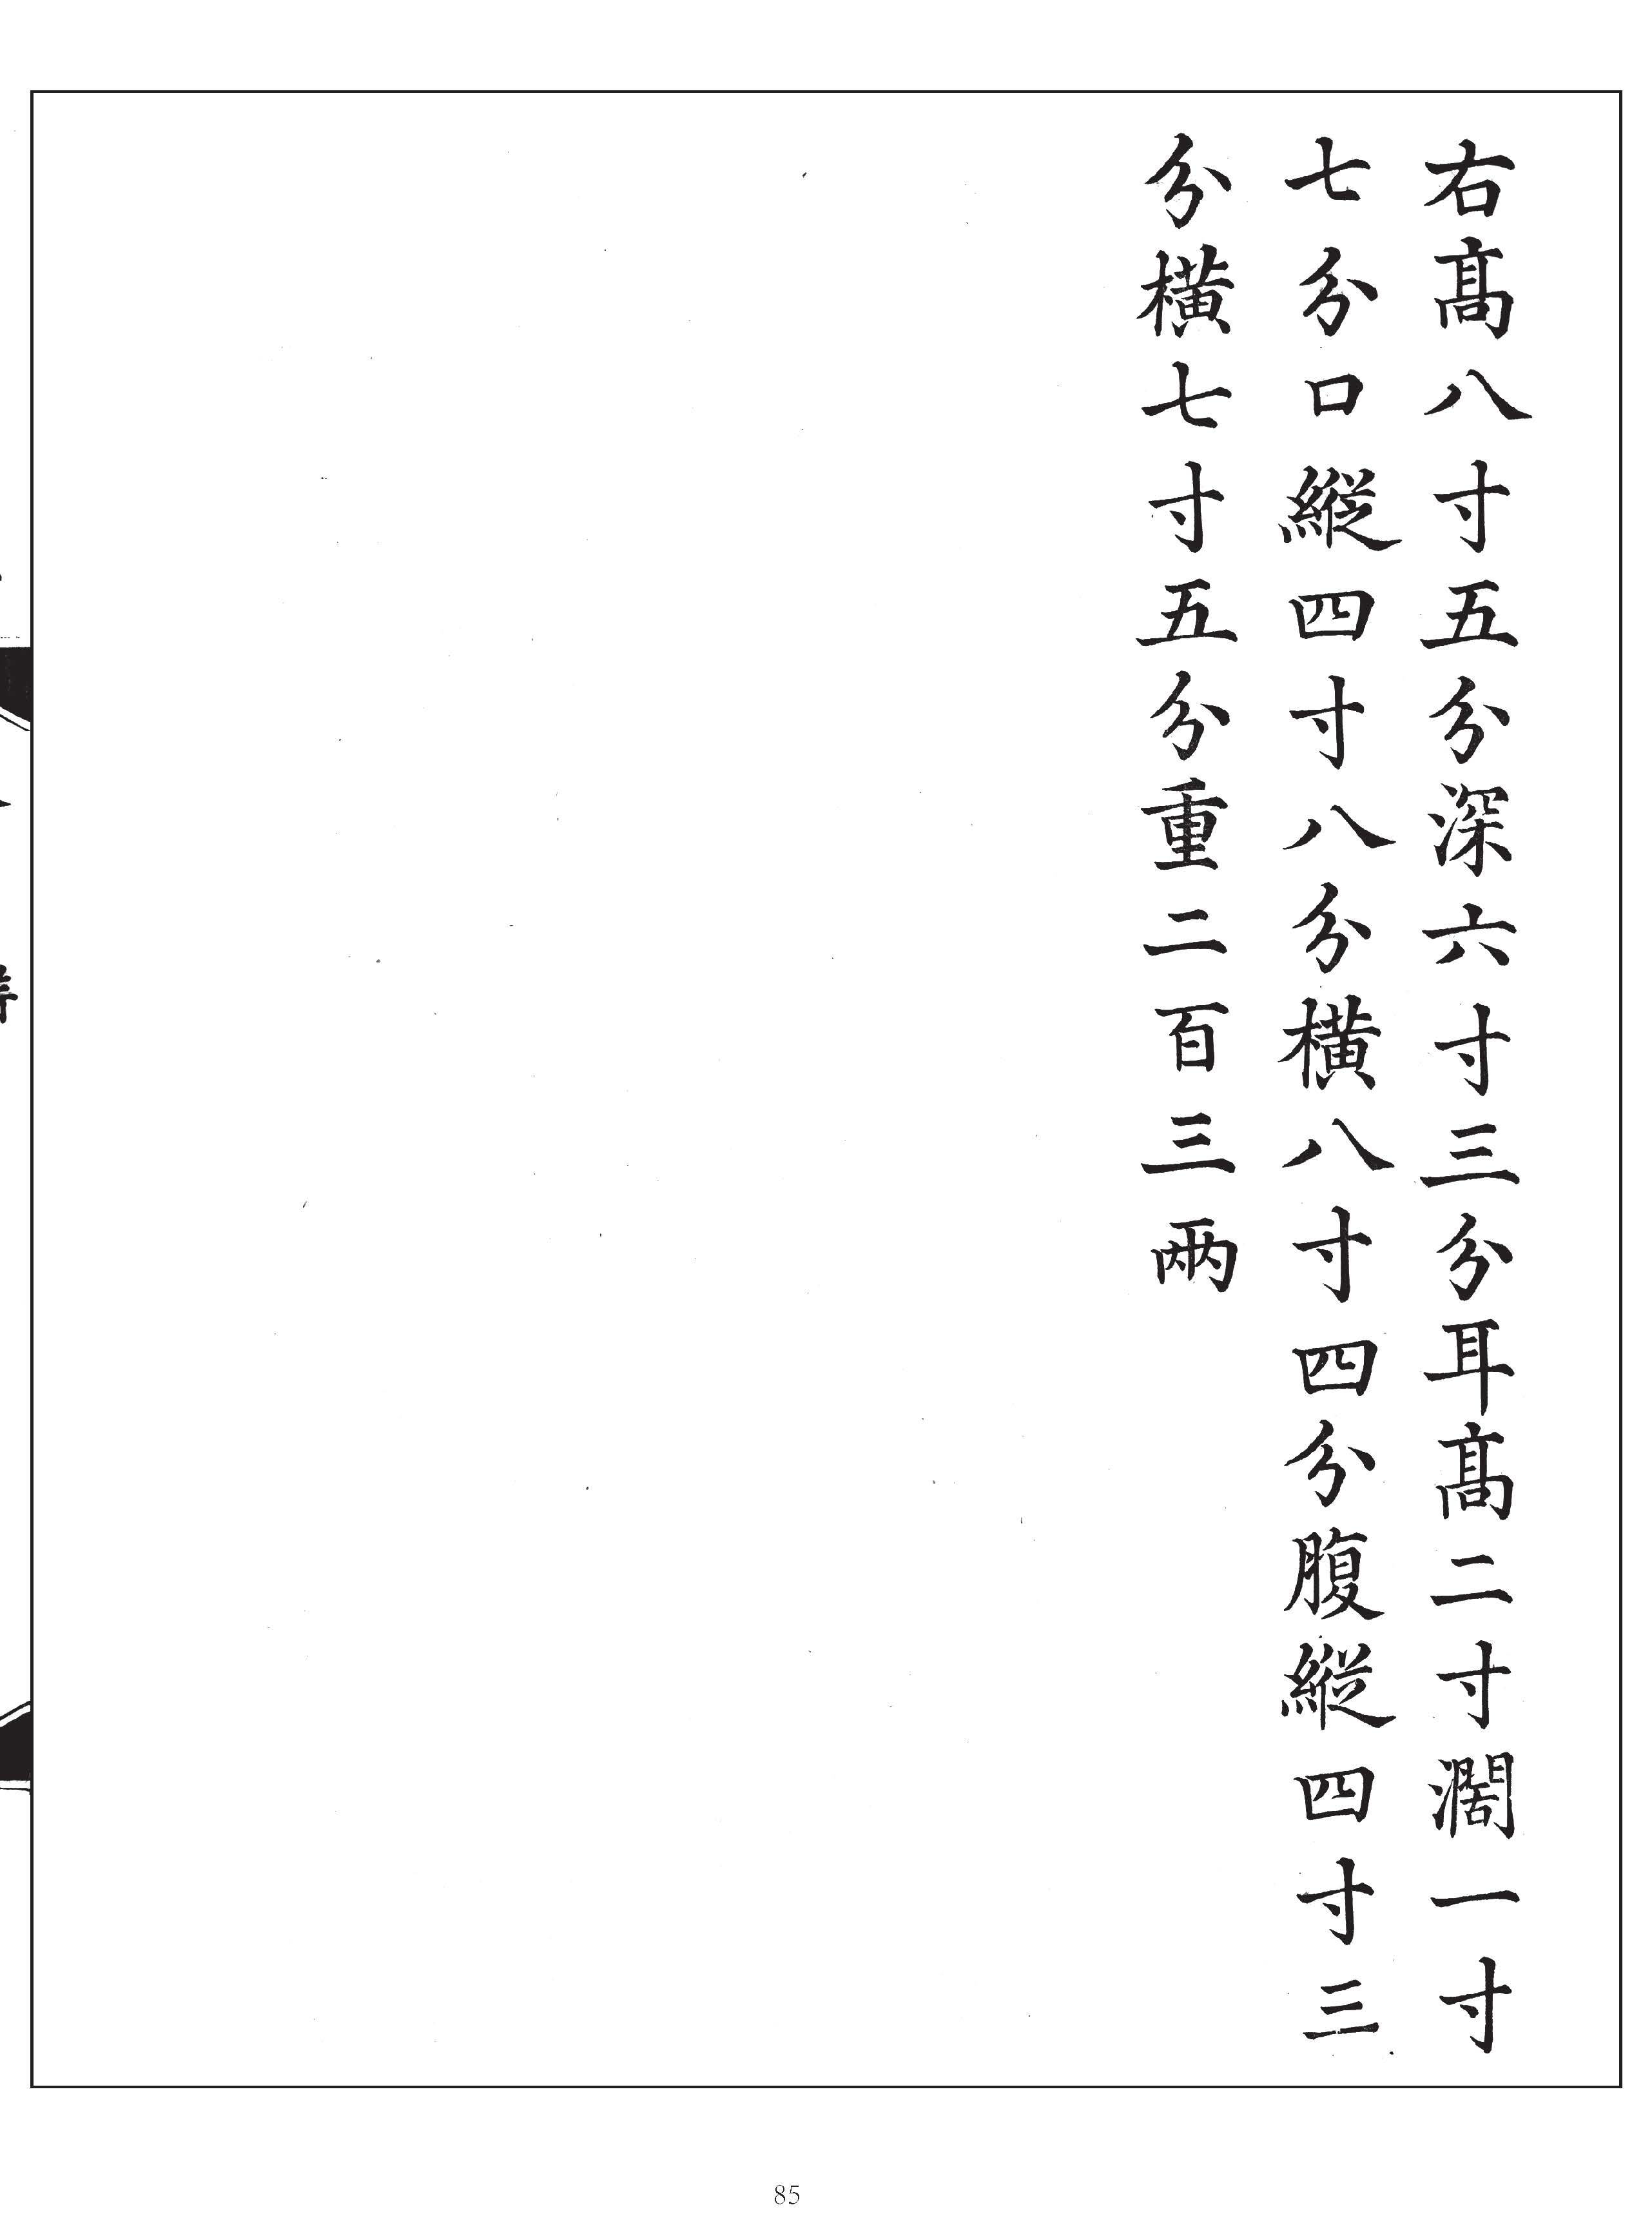 右髙八寸五分深六寸三分耳髙二寸濶一寸
七分口縱四寸八分橫八寸四分腹縱四寸三
分橫七寸五分重二百三兩
85